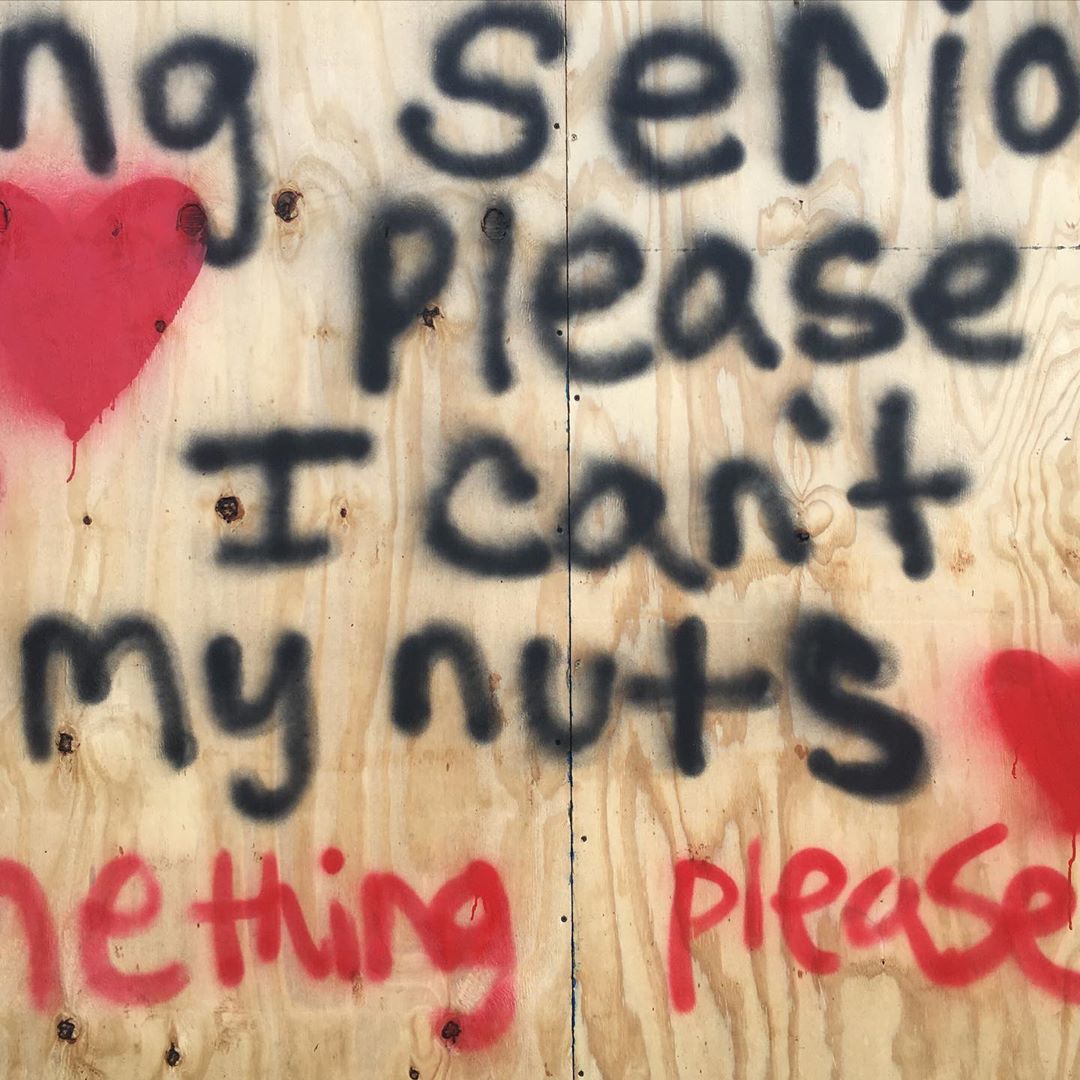 ng serio
please
I can't
my nuts
mething please